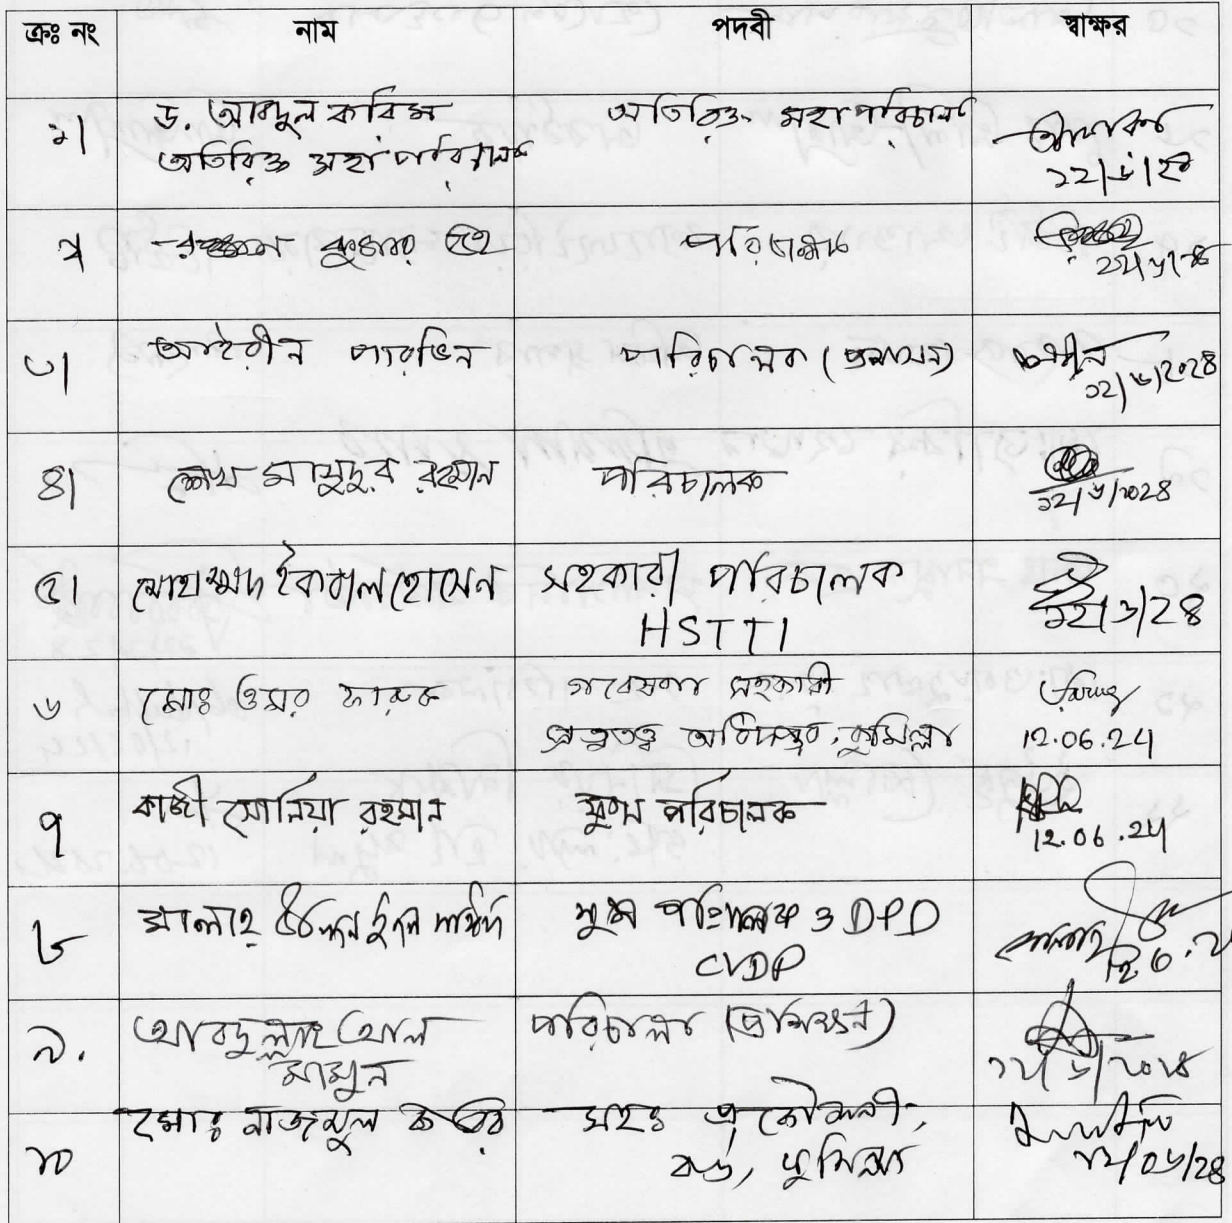 ক্রঃ নং নাম পদবী স্বাক্ষর
১। ড. আবদুল করিম অতিরিক্ত মহাপরিচালক
অতিরিক্ত মহাপরিচালক
১২/৬/২৪
২ কুমার পরিচালক
১২/৬/২৪
৩। আইরীন পারভিন পরিচালক (প্রশাসন)
১২/৬/২০২৪
৪। শেখ মাসুদুর রহমান পরিচালক
১২/৬/২০২৪
৫। মোহাম্মদ ইকবাল হোসেন সহকারী পরিচালক
HSTTI ১২/৬/২৪
৬ মোঃ ওমর ফারুক গবেষণা সহকারী
প্রত্নতত্ত্ব অধিদপ্তর, কুমিল্লা 12.06.24
৭ কাজী সোনিয়া রহমান যুগ্ম পরিচালক
12.06.24
৮ সালাহ উদ্দিন যুগ্ম পরিচালক ও DPD
CVDP
৯. আবদুল্লাহ আল পরিচালক (প্রশিক্ষণ)
মামুন ১২/৬/২০২৪
১০ মোঃ নাজমুল কবির সহঃ প্রকৌশলী,
বার্ড, কুমিল্লা ১২/০৬/২৪